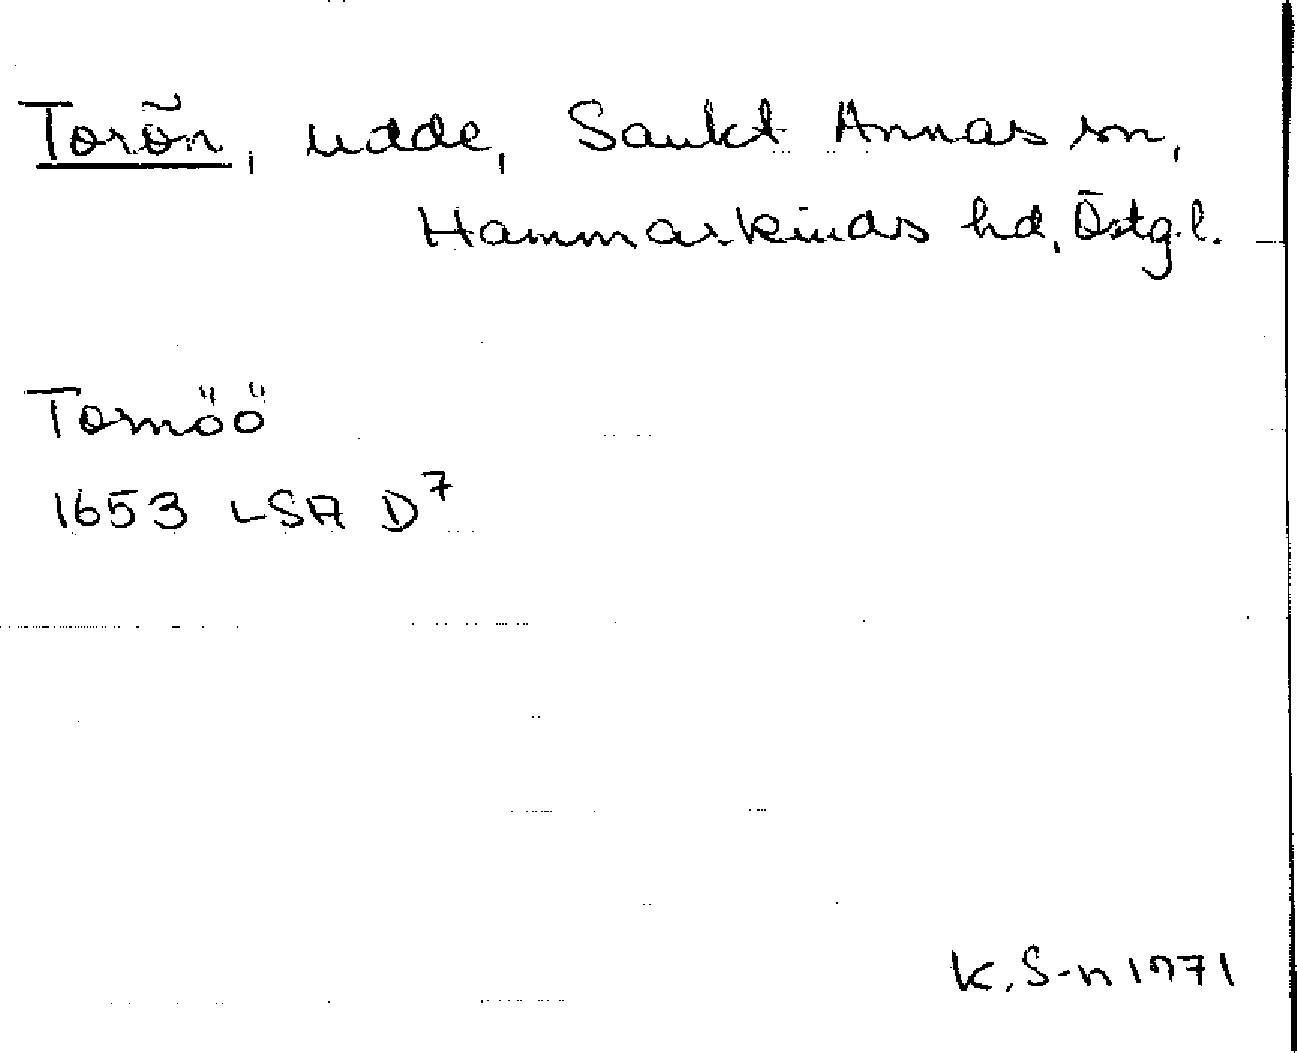 Torön, udde, Sankt Annas sn,
Hammarkinds hd, Östg.l.
Tomöö
1653 LSA D7
K. S-n 1971